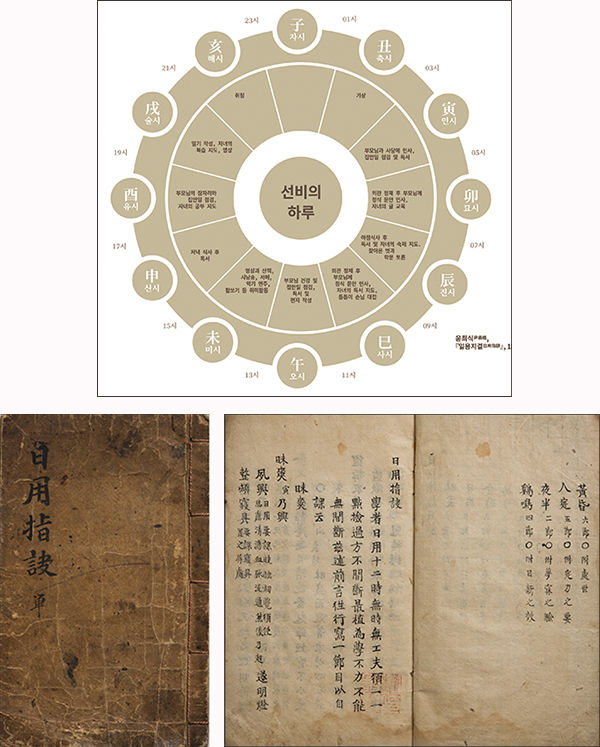 子
자시
01시
丑
축시
03시
寅
인시
05시
卯
묘시
07시
辰
진시
09시
巳
사시
11시
午
오시
13시
未
미시
15시
申
신시
17시
酉
유시
19시
戌
술시
21시
亥
해시
23시
선비의
하루
기상
부모님과 사당에 인사,
집안일 점검 및 독서
의관 정제 후 부모님께
정식 문안 인사,
자녀의 글 교육
아침식사 후
독서 및 자녀의 숙제 지도,
찾아온 벗과
학문 토론
의관 정제 후
부모님께
정식 문안 인사,
자녀의 독서 지도,
틈틈이 손님 대접
부모님 건강 및
집안일 점검,
독서 및
편지 작성
명상과 산책,
시낭송, 서예,
악기 연주,
활쏘기 등 취미활동
저녁 식사 후
독서
부모님의 잠자리와
집안일 점검,
자녀의 공부 지도
일기 작성, 자녀의
복습 지도, 명상
취침
윤최식
『일용지결』, 1
日用指訣
單
黃昏 六節○附處世
人定 五節○附
夜半 二節○附夢寐之驗
鷄鳴 四節○附日新之效
日用指訣
學者日用十二時無時無工夫須一一
點檢過方不間斷最植為學不力不能
無間斷茲述前言往行寫一節目以自
課云
昧爽
昧爽 寅 乃興
夙興